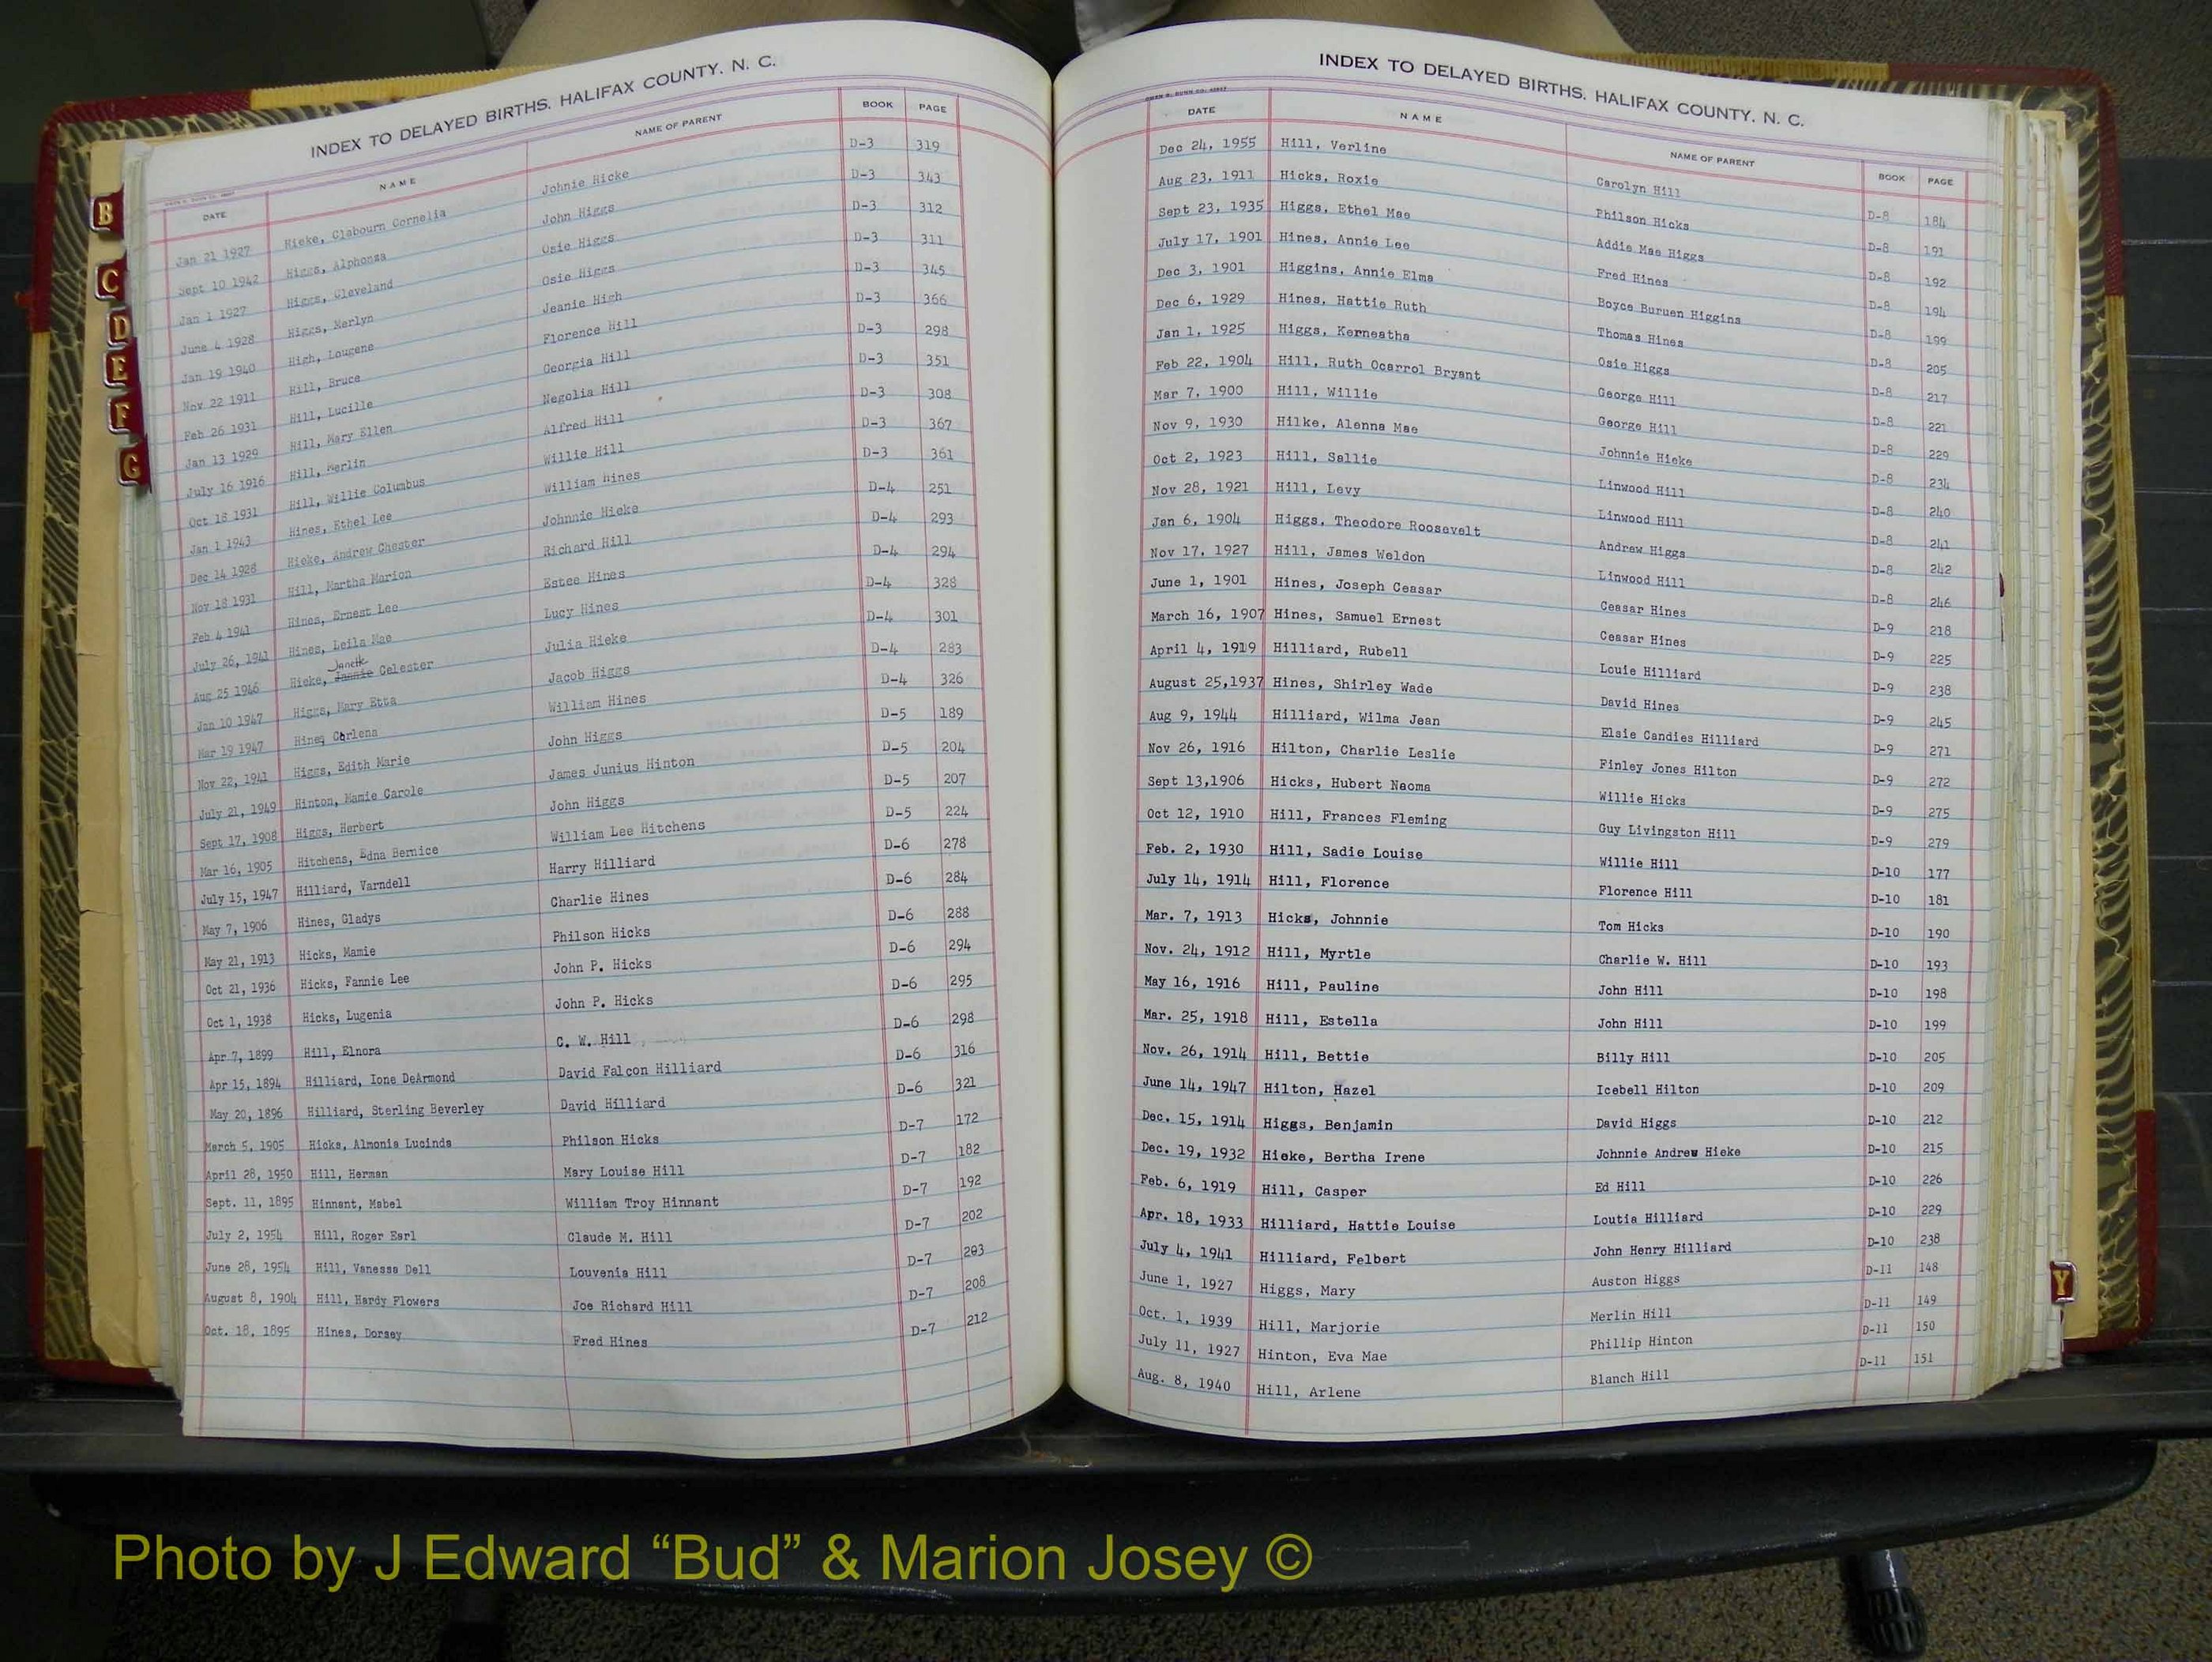 INDEX TO DELAYED BIRTHS, HALIFAX COUNTY, N. C.
DATE NAME NAME OF PARENT BOOK PAGE
Jan 21 1927 Hieke, Clabourn Cornelia Johnie Hicke D-3 319
Sept 10 1942 Higgs, Alphonza John Higgs D-3 343
Jan 1 1927 Higgs, Cleveland Osie Higgs D-3 312
June 4 1928 Higgs, Merlyn Osie Higgs D-3 311
Jan 19 1940 High, Lougene Jeanie High D-3 345
Nov 22 1911 Hill, Bruce Florence Hill D-3 366
Feb 26 1931 Hill, Lucille Georgia Hill D-3 298
Jan 13 1929 Hill, Mary Ellen Negolia Hill D-3 351
July 16 1916 Hill, Merlin Alfred Hill D-3 308
Oct 18 1931 Hill, Willie Columbus Willie Hill D-3 367
Jan 1 1943 Hines, Ethel Lee William Hines D-3 361
Dec 14 1928 Hieke, Andrew Chester Johnnie Hieke D-4 251
Nov 18 1931 Hill, Martha Marion Richard Hill D-4 293
Feb 4 1941 Hines, Ernest Lee Estee Hines D-4 294
July 26, 1941 Hines, Leila Mae Lucy Hines D-4 328
Aug 25 1946 Hieke, Jannie Janett Celester Julia Hieke D-4 301
Jan 10 1947 Higgs, Mary Etta Jacob Higgs D-4 283
Mar 19 1947 Hines Carlena William Hines D-4 326
Nov 22, 1941 Higgs, Edith Marie John Higgs D-5 189
July 21, 1949 Hinton, Mamie Carole James Junius Hinton D-5 204
Sept 17, 1908 Higgs, Herbert John Higgs D-5 207
Mar 16, 1905 Hitchens, Edna Bernice William Lee Hitchens D-5 224
July 15, 1947 Hilliard, Varndell Harry Hilliard D-6 278
May 7, 1906 Hines, Gladys Charlie Hines D-6 284
May 21, 1913 Hicks, Mamie Philson Hicks D-6 288
Oct 21, 1936 Hicks, Fannie Lee John P. Hicks D-6 294
Oct 1, 1938 Hicks, Lugenia John P. Hicks D-6 295
Apr 7, 1899 Hill, Elnora C. W. Hill D-6 298
Apr 15, 1894 Hilliard, Ione DeArmond David Falcon Hilliard D-6 316
May 20, 1896 Hilliard, Sterling Beverley David Hilliard D-6 321
March 5, 1905 Hicks, Almonia Lucinda Philson Hicks D-7 172
April 28, 1950 Hill, Herman Mary Louise Hill D-7 182
Sept. 11, 1895 Hinnant, Mabel William Troy Hinnant D-7 192
July 2, 1954 Hill, Roger Earl Claude M. Hill D-7 202
June 28, 1954 Hill, Vanessa Dell Louvenia Hill D-7 203
August 8, 1904 Hill, Hardy Flowers Joe Richard Hill D-7 208
Oct. 18, 1895 Hines, Dorsey Fred Hines D-7 212
B
C
D
E
F
G
INDEX TO DELAYED BIRTHS, HALIFAX COUNTY, N. C.
DATE NAME NAME OF PARENT BOOK PAGE
Dec 24, 1955 Hill, Verline Carolyn Hill D-8 184
Aug 23, 1911 Hicks, Roxie Philson Hicks D-8 191
Sept 23, 1935 Higgs, Ethel Mae Addie Mae Higgs D-8 192
July 17, 1901 Hines, Annie Lee Fred Hines D-8 194
Dec 3, 1901 Higgins, Annie Elma Boyce Buruen Higgins D-8 199
Dec 6, 1929 Hines, Hattie Ruth Thomas Hines D-8 205
Jan 1, 1925 Higgs, Kerneatha Osie Higgs D-8 217
Feb 22, 1904 Hill, Ruth Ocarrol Bryant George Hill D-8 221
Mar 7, 1900 Hill, Willie George Hill D-8 229
Nov 9, 1930 Hilke, Alenna Mae Johnnie Hieke D-8 234
Oct 2, 1923 Hill, Sallie Linwood Hill D-8 240
Nov 28, 1921 Hill, Levy Linwood Hill D-8 241
Jan 6, 1904 Higgs, Theodore Roosevelt Andrew Higgs D-8 242
Nov 17, 1927 Hill, James Weldon Linwood Hill D-8 246
June 1, 1901 Hines, Joseph Ceasar Ceasar Hines D-9 218
March 16, 1907 Hines, Samuel Ernest Ceasar Hines D-9 225
April 4, 1919 Hilliard, Rubell Louie Hilliard D-9 238
August 25,1937 Hines, Shirley Wade David Hines D-9 245
Aug 9, 1944 Hilliard, Wilma Jean Elsie Candies Hilliard D-9 271
Nov 26, 1916 Hilton, Charlie Leslie Finley Jones Hilton D-9 272
Sept 13,1906 Hicks, Hubert Naoma Willie Hicks D-9 275
Oct 12, 1910 Hill, Frances Fleming Guy Livingston Hill D-9 279
Feb. 2, 1930 Hill, Sadie Louise Willie Hill D-10 177
July 14, 1914 Hill, Florence Florence Hill D-10 181
Mar. 7, 1913 Hicks, Johnnie Tom Hicks D-10 190
Nov. 24, 1912 Hill, Myrtle Charlie W. Hill D-10 193
May 16, 1916 Hill, Pauline John Hill D-10 198
Mar. 25, 1918 Hill, Estella John Hill D-10 199
Nov. 26, 1914 Hill, Bettie Billy Hill D-10 205
June 14, 1947 Hilton, Hazel Icebell Hilton D-10 209
Dec. 15, 1914 Higgs, Benjamin David Higgs D-10 212
Dec. 19, 1932 Hieke, Bertha Irene Johnnie Andrew Hieke D-10 215
Feb. 6, 1919 Hill, Casper Ed Hill D-10 226
Apr. 18, 1933 Hilliard, Hattie Louise Loutia Hilliard D-10 229
July 4, 1941 Hilliard, Felbert John Henry Hilliard D-10 238
June 1, 1927 Higgs, Mary Auston Higgs D-11 148
Oct. 1, 1939 Hill, Marjorie Merlin Hill D-11 149
July 11, 1927 Hinton, Eva Mae Phillip Hinton D-11 150
Aug. 8, 1940 Hill, Arlene Blanch Hill D-11 151
Y
Photo by J Edward “Bud” & Marion Josey ©